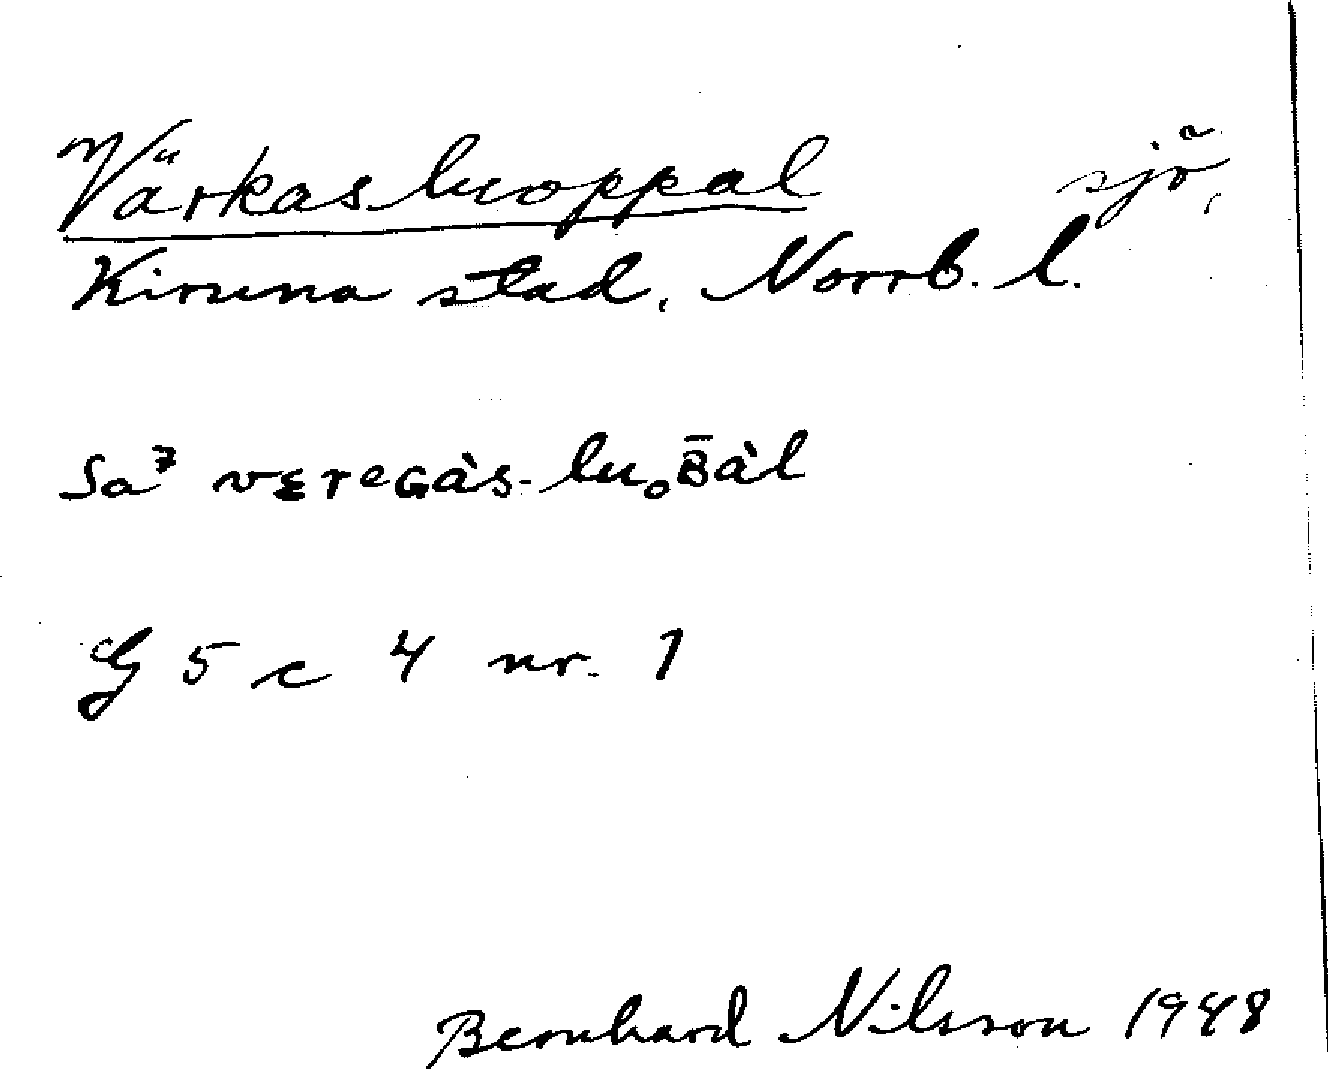 Värkasluoppal sjö,
Kiruna stad, Norrb. l.
Sa⁷ vɛreɢàs-luₒʙ̄àl
G 5 c 4 nr. 1
Bernhard Nilsson 1948